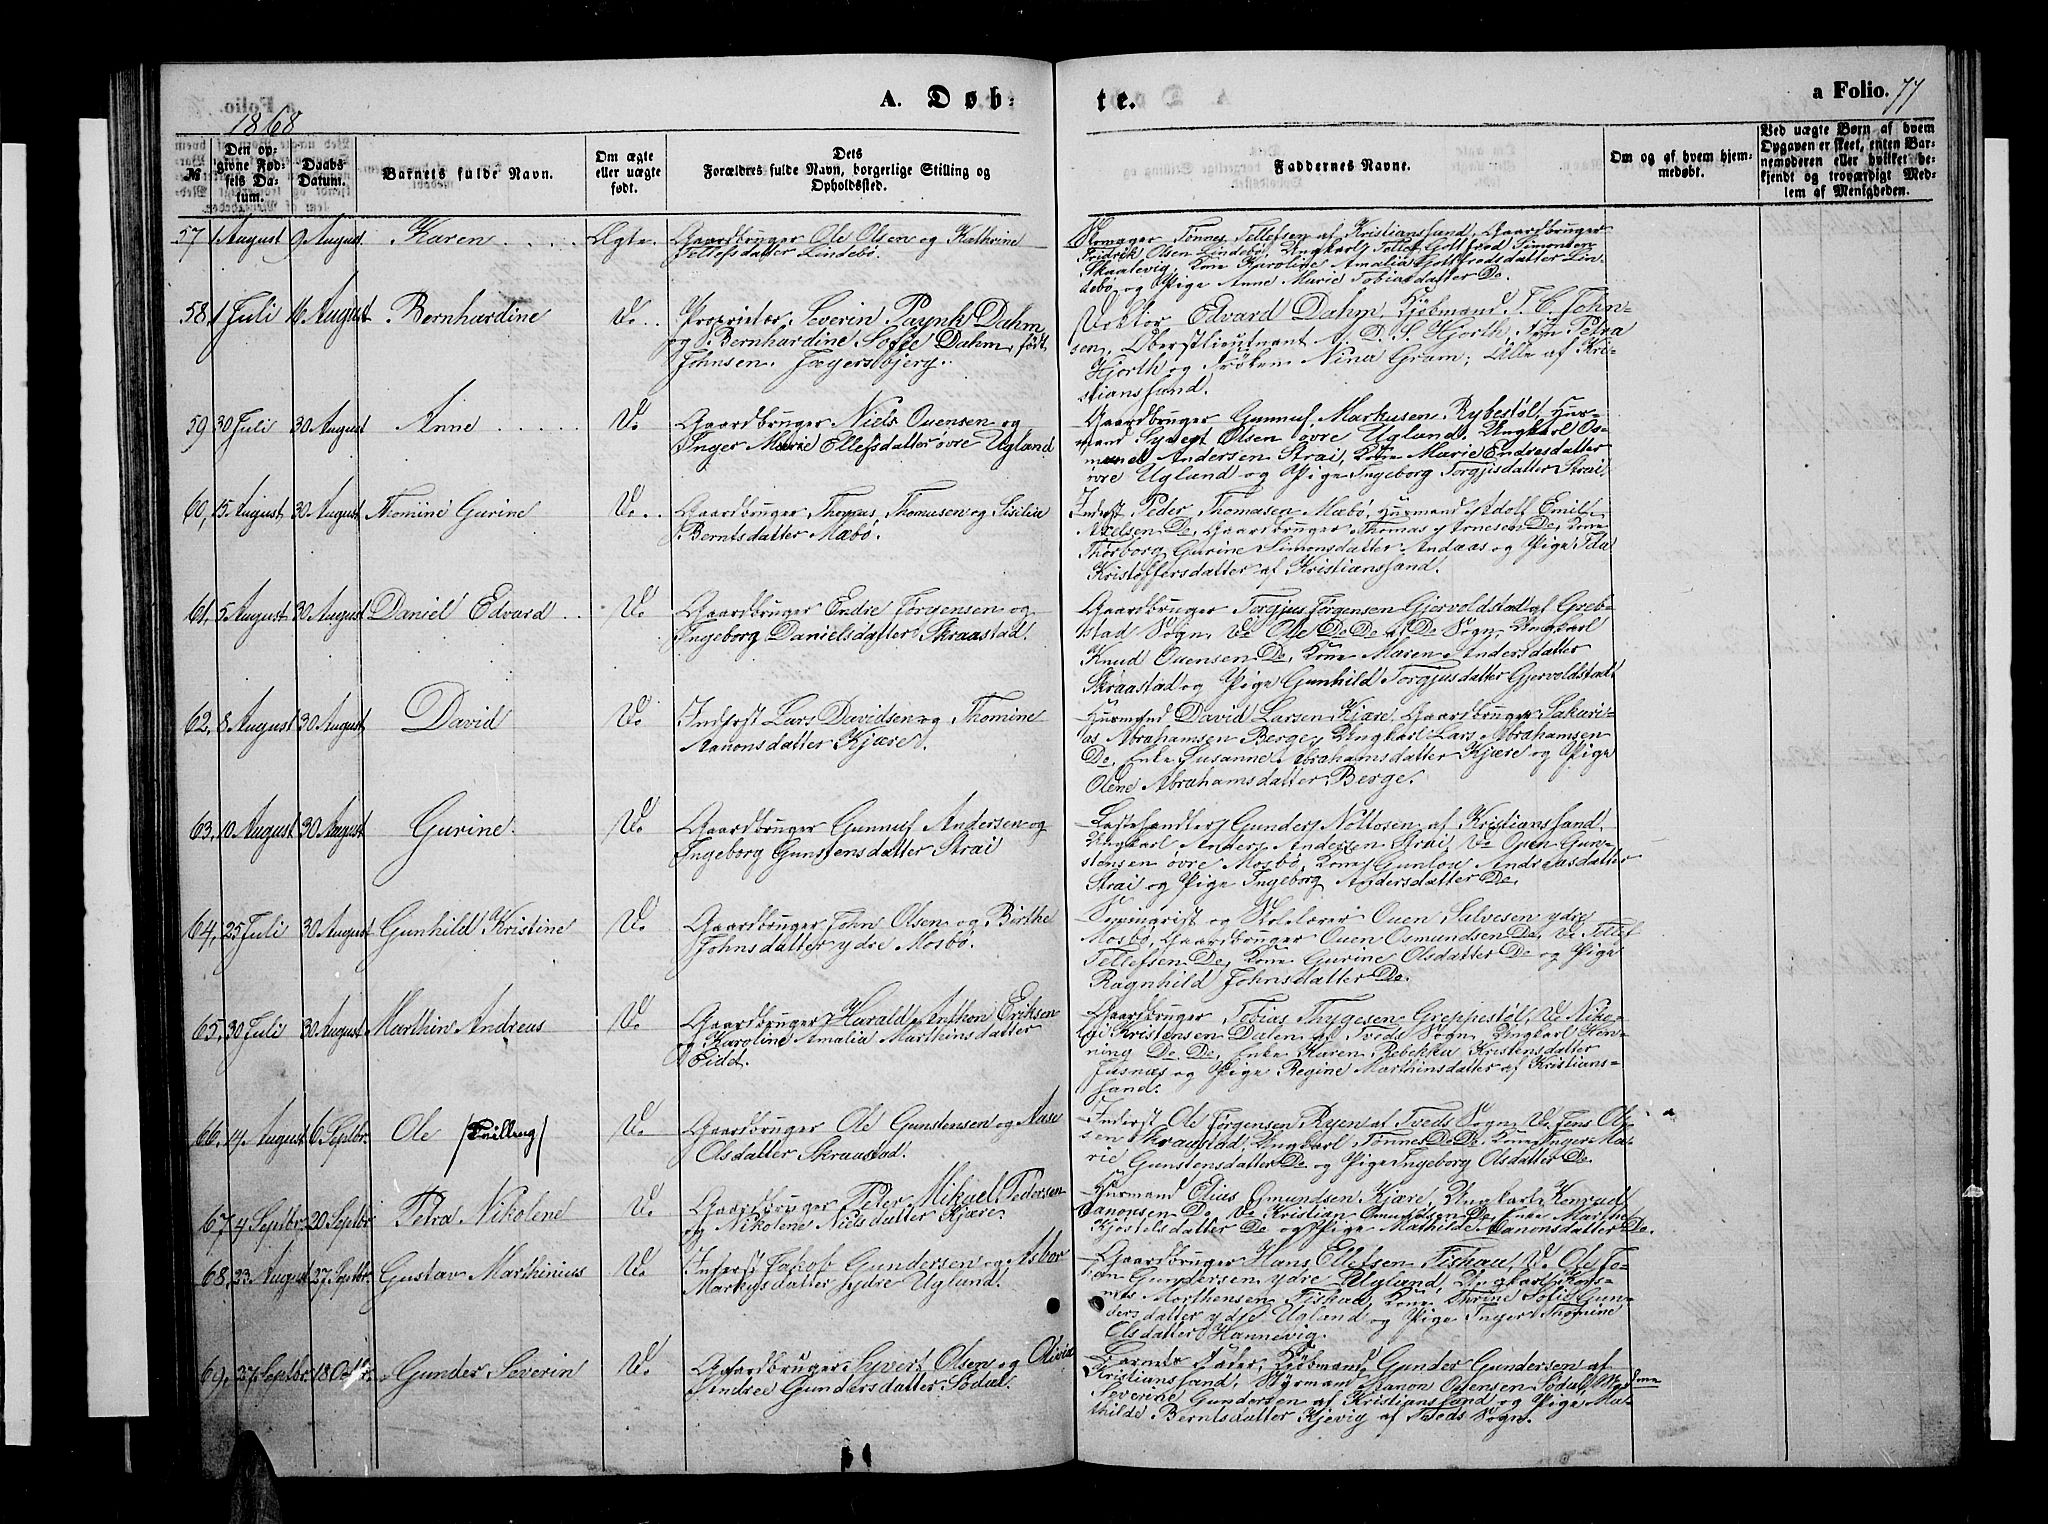 A. Døb-
te.
a Folio. 77
1868
№
Den op-
givne Fød-
sels Da-
tum.
Daabs
Datum.
Barnets fulde Navn.
Om ægte
eller uægte
født.
Dets
Forældres fulde Navn, borgerlige Stilling og
Opholdssted.
Faddernes Navne.
Om og af hvem hjem-
medøbt.
Ved uægte Børn af hvem
Opgaven er skeet, enten Bar-
nemoderen eller hvilket be-
kjendt og troværdigt Med-
lem af Menigheden.
57 1 August 9 August Karen Ægte. Gaardbruger Ole Olsen og Kathrine
Tellefsdatter Lindebø.
Skomager Tønnes Tellefsen af Kristianssand, Gaardbruger
Fredrik Olsen Lindebø, Ungkarl Tellef Gottfred Simonsen
Skaalevig, Kone Karoline Amalia Gottfredsdatter Lin-
debø og Pige Anne Marie Tobiasdatter Do.
58, 1 Juli 16 August Bernhardine Do. Proprietær Severin Paynk Dahm
og Bernhardine Sofie Dahm, født
Johnsen. Jægersbjerg.
Doktor Edvard Dahm, Kjøbmand T. C. John-
sen, Oberstlieutnant A. D. S. Hjorth, Frue Petra
Hjorth og Frøken Nina Gram; Alle af Kri-
stianssand.
59 30 Juli 30 August Anne Do Gaardbruger Niels Ouensen og
Inger Marie Ellefsdatter øvre Ugland
Gaardbruger Gunnuf Markusen Rybestøl, Hus-
mand Syvert Olsen øvre Ugland. Ungkarl Os-
mund Andersen Strai, Kone Marie Endresdatter
øvre Ugland og Pige Ingeborg Torgjisdatter Strai,
60, 15 August 30 August Thomine Gurine Do. Gaardbruger Thomas Thomasen og Sisilia
Berntsdatter Mæbø.
Inderst Peder Thomasen Mæbø, Husmand Adolf Emil
Axelsen Do, Gaardbruger Thomas Arnesen Do, Kone
Thorborg Gurine Simonsdatter Andaas og Pige Ida
Kristoffersdatter af Kristianssand.
61, 5 August 30 August Daniel Edvard Do Gaardbruger Endre Jørgensen og
Ingeborg Danielsdatter Skraastad.
Gaardbruger Torgjus Jørgensen Gjervoldstad af Greb-
stad Sogn. Do Ole Do Do af Do Sogn. Ungkarl
Knud Ouensen Do, Kone Maren Andersdatter
Skraastad og Pige Gunhild Torgjusdatter Gjervoldstad
62, 8 August 30 August David Do Inderst Lars Davidsen og Thomine
Aanonsdatter Kjære.
Husmand David Larsen Kjære, Gaardbruger Sakari-
as Abrahamsen Berge, Ungkarl Lars Abrahamsen
Do, Enke Susanne Abrahamsdatter Kjære og Pige
Olene Abrahamsdatter Berge.
63, 10 August 30 August Gurine. Do Gaardbruger Gunnuf Andersen og
Ingeborg Gunstensdatter Strai
Lastehandler Gunder Nottosen af Kristianssand.
Ungkarl Anders Andersen Strai, Do Ouen Gun-
stensen øvre Mosbø, Kone Gunlou Andreasdatter
Strai og Pige Ingeborg Andersdatter Do.
64, 25 Juli 30 August Gunhild Kristine Do Gaardbruger John Olsen og Birthe
Johnsdatter ydre Mosbø.
Seminarist og Skolelærer Ouen Salvesen ydre
Mosbø, Gaardbruger Ouen Osmundsen Do, Do Tellef
Tellefsen Do, Kone Gurine Olsdatter Do og Pige
Ragnhild Johnsdatter Do.
65, 30 Juli 30 August Marthin Andreas Do Gaardbruger Harald Anthon Eriksen
og Karoline Amalia Marthinsdatter
Eidd.
Gaardbruger Tobias Thygesen Greppestøl, Do Niko-
lai Kristensen Dalen af Tveds Sogn, Ungkarl Hen-
ning Do Do, Enke Karen Rebekka Kristensdatter
Jusnæs og Pige Regine Marthinsdatter af Kristians-
sand.
66, 14 August 6 Septbr. Ole /Tvilling/ Do Gaardbruger Ole Gunstensen og Aase
Olsdatter Skraastad.
Inderst Ole Jørgensen Ryen af Tveds Sogn, Do Jens Ol-
sen Skraastad, Ungkarl Tønnes Do Do, Kone Inger Ma-
rie Gunstensdatter Do og Pige Ingeborg Olsdatter Do.
67, 4 Septbr. 20 Septbr. Petra Nikolene Do Gaardbruger Peter Mikael Pedersen
og Nikolene Nielsdatter Kjære.
Husmand Elias Omundsen Kjære, Ungkarl Konrad
Aanonsen Do, Do Kristian Omundsen Do, Enke Marthe
Kjestelsdatter Do og Pige Mathilde Aanonsdatter Do.
68, 23 August 27 Septbr. Gustav Marthinius Do Inderst Jakob Gundersen og Asbor
Markusdatter ydre Ugland.
Gaardbruger Hans Ellefsen Fiskaa, Do Ole Jo-
han Gundersen ydre Ugland, Ungkarl Ras-
mus Morthensen Fiskaa, Kone Thrine Sofie Gun-
dersdatter ydre Ugland og Pige Inger Thomine
Olsdatter Hannevig.
69, 27 Septbr. 18 Octbr. Gunder Severin Do Gaardbruger Syvert Olsen og Olivia
Andrea Gundersdatter Sødal.
Barnets Fader, Kjøbmand Gunder Gundersen af
Kristianssand, Styrmand Aanon Ouensen Sødal, Madame
Severine Gundersen af Kristianssand og Pige Ma-
thilde Berntsdatter Kjevig af Tveds Sogn.